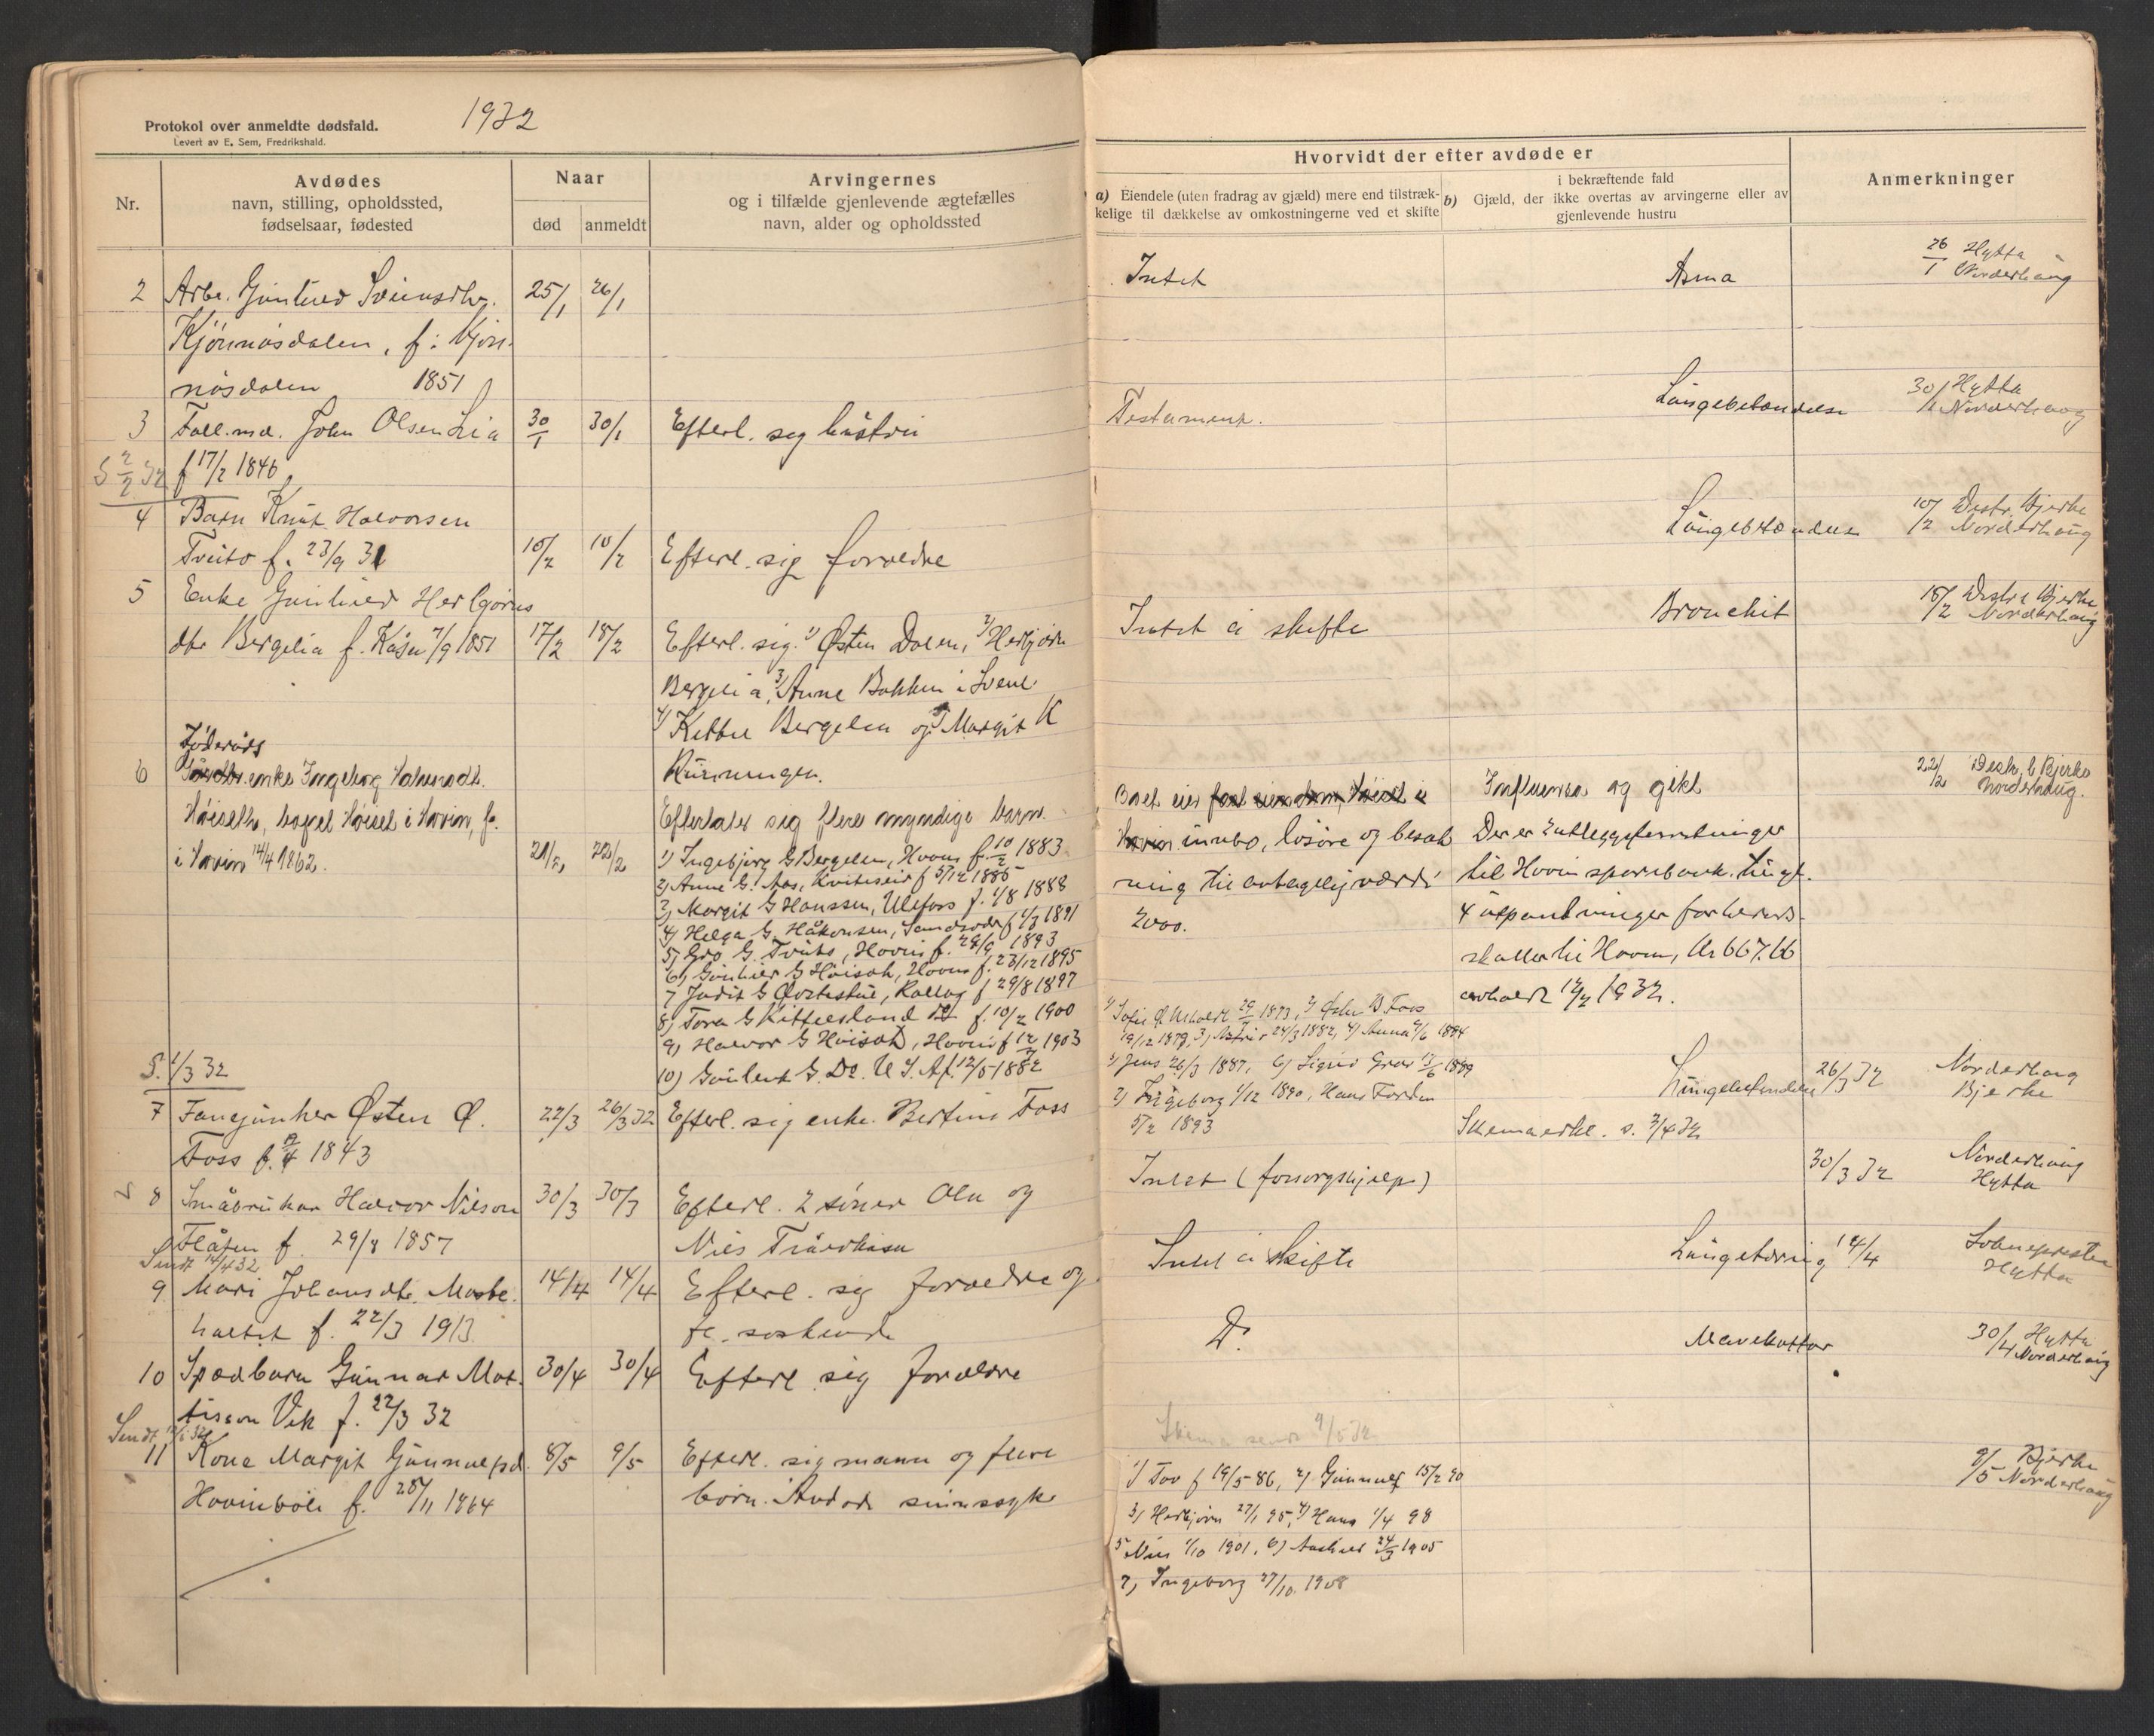 1932
Protokol over anmeldte dødsfald.
Levert av E. Sem, Fredrikshald.
Nr.
Avdødes
navn, stilling, opholdssted,
fødselsaar, fødested
Naar
død
anmeldt
Arvingernes
og i tilfælde gjenlevende ægtefælles
navn, alder og opholdssted
Hvorvidt der efter avdøde er
a) Eiendele (uten fradrag av gjæld) mere end tilstræk-
kelige til dækkelse av omkostningerne ved et skifte
i bekræftende fald
b) Gjæld, der ikke overtas av arvingerne eller av
gjenlevende hustru
Anmerkninger
2 Arbe. Gunhild Sveinsdtr. 25/1 26/1 Intet Asma 26/1 Hytta
Norderhaug
Kjönnösdalen, f. i Kjön-
nösdalen 1851
3 Fall.md. John Olsen Lia 30/1 30/1 Efterl. seg hustru Testament. Lungebetændelse 30/1 Hytta
Norderhaug
S 2/2 32 f 17/2 1846
4 Barn Knut Halvorsen
Tveito f. 23/9 31 10/2 10/2 Efterl. sig forældre Lungebetændelse 10/2 Distr. Bjerke
Norderhaug
5 Enke Gunhild Herbjørns
dtr Bergelia f. Kåsa 7/9 1851 17/2 18/2 Efterl. sig. 1) Østen Dalen, 2) Herbjörn
Intet å skifte Bronchit 18/2 Distr. Bjerke
Norderhaug
Bergelia, 3) Anne Bakken i Svene
4) Kittil Bergelia og 5) Margit K
Rønningen.
6 Föderåds
enke Ingeborg Halvorsdtr.
Höiseth, bopel Höiset i Hovin, f.
i Hovin 14/4 1862. 21/2 22/2
Efterlater seg flere myndige barn.
1) Ingebjørg G Bergelien, Hovin f. 10/2 1883
2) Anne G. Aas, Kviteseid f 5/12 1885
3) Margit G Hanssen, Ulefoss f. 1/8 1888
4) Helga G. Håkonsen, f 1/3 1891
5) Gro G. Tveito, Hovin f. 29/9 1893
6) Gunhild G Höiset, Hovin f. 23/12 1895
7 Judit G Øvrestue, Rollag f 29/8 1897
8) Tora G Kittelsland f. 10/2 1900
9) Halvor G Höiset, Hovin f 12/7 1903
10) Gunleik G. Do. U.S.A f. 12/5 1882
Boet eier fast eiendom, Höiset i
Hovin innbo, lösöre og besæt
ning til antagelig værdi
2000.
Influensa og gikt
Der er 2 utleggsforretninger
til Hovin sparebank. tingl.
4 utpantninger for herreds-
skatter til Hovin, Kr 667.66
avholdt 12/2 1932.
22/2 Distr. l Bjerke
Norderhaug.
S. 1/3 32
7 Fanejunker Østen Ø. 22/3 26/3 32 Efterl. sig enke. Bertine Foss
Foss f. 12/4 1843
29/1 1873, 2) Østen Ø Foss
19/12 1879, 3) Astri 24/3 1882, 4) Anna 9/6 1884
5) Jens 26/3 1887, 6) Sigrid Grav 13/6 1889
7) Ingeborg 1/12 1890, Hans Fordin
5/2 1893
Lungebetændelse 26/3 32 Norderhaug
Bjerke
Skema s. 3/4 32
8 Småbruker Halvor Nilsen 30/3 30/3 Efterl. 2 söner Ola og
Flåten f 29/8 1857 Nils
Intet (forsorgshjelp) 30/3 32 Norderhaug
Hytta
Sendt 14/4 32
9 Mari Johansdtr. Mosbe. 14/4 14/4 Efterl. sig forældre og
f. 22/3 1913. fl. söskende
Intet å skifte Lungetæring 14/4 Soknepresten
Hytta
10 Spædbarn Gunnar Mat. 30/4 30/4 Efterl sig forældre
tisson Vik f. 22/3 32
Do. Mavekatar 30/4 Hytta
Norderhaug
Sendt
11 Kone Margit Gunnulfsd. 8/5 9/5 Efterl. sig mann og flere
Hovinböle f. 28/11 1864 börn. Avdöde sinnssyk
Skema sendt 9/5 32
1) Tov f 19/5 86, 2) Gunnulf 15/2 90
3) Herbjörn 27/1 95, 4) Hans 1/4 98
5 Nils 1/10 1901, 6) Aashild 24/3 1905
7) Ingeborg 27/10. 1908
9/5 Bjerke
Norderhaug